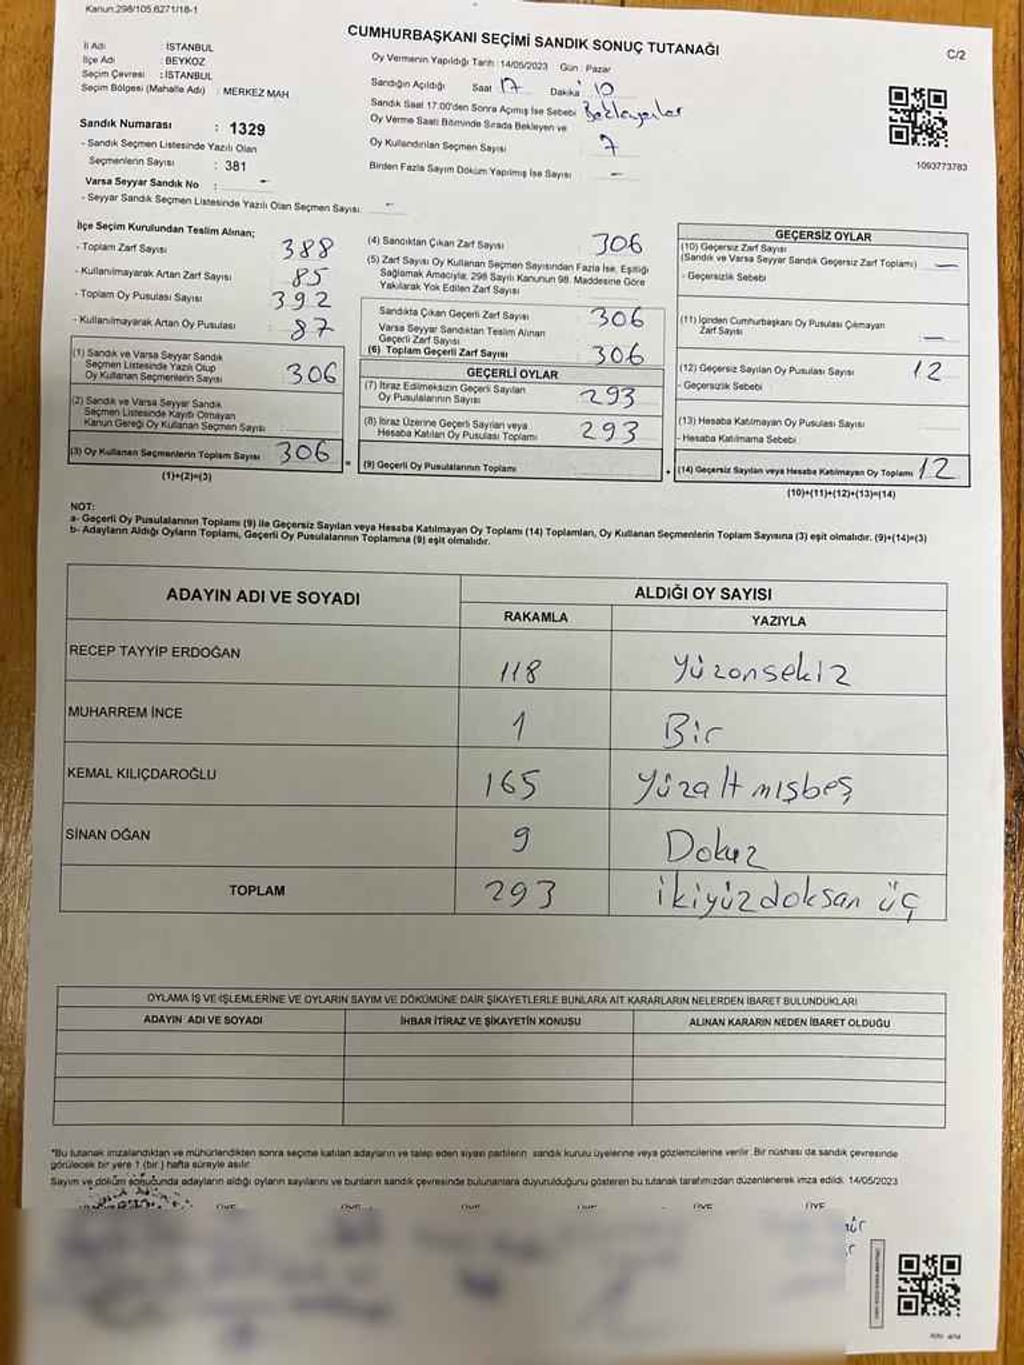 Kanun:298/105.6271/18-1
CUMHURBAŞKANI SEÇİMİ SANDIK SONUÇ TUTANAĞI
C/2
İl Adı : İSTANBUL
İlçe Adı : BEYKOZ
Seçim Çevresi : İSTANBUL
Seçim Bölgesi (Mahalle Adı) : MERKEZ MAH
Oy Vermenin Yapıldığı Tarih :14/05/2023 Gün : Pazar
Sandığın Açıldığı Saat 17 Dakika 10
Sandık Saat 17.00'den Sonra Açılmış İse Sebebi Bekleyenler
Oy Verme Saati Bitiminde Sırada Bekleyen ve
Oy Kullandırılan Seçmen Sayısı 7
Birden Fazla Sayım Döküm Yapılmış İse Sayısı —
1093773783
Sandık Numarası : 1329
- Sandık Seçmen Listesinde Yazılı Olan
Seçmenlerin Sayısı : 381
Varsa Seyyar Sandık No : -
- Seyyar Sandık Seçmen Listesinde Yazılı Olan Seçmen Sayısı: -
İlçe Seçim Kurulundan Teslim Alınan;
- Toplam Zarf Sayısı 388
- Kullanılmayarak Artan Zarf Sayısı 85
- Toplam Oy Pusulası Sayısı 392
- Kullanılmayarak Artan Oy Pusulası 87
(1) Sandık ve Varsa Seyyar Sandık
Seçmen Listesinde Yazılı Olup
Oy Kullanan Seçmenlerin Sayısı 306
(2) Sandık ve Varsa Seyyar Sandık
Seçmen Listesinde Kayıtlı Olmayan
Kanun Gereği Oy Kullanan Seçmen Sayısı :
(3) Oy Kullanan Seçmenlerin Toplam Sayısı 306
(1)+(2)=(3)
(4) Sandıktan Çıkan Zarf Sayısı 306
(5) Zarf Sayısı Oy Kullanan Seçmen Sayısından Fazla İse, Eşitliği
Sağlamak Amacıyla, 298 Sayılı Kanunun 98. Maddesine Göre
Yakılarak Yok Edilen Zarf Sayısı
Sandıkta Çıkan Geçerli Zarf Sayısı 306
Varsa Seyyar Sandıktan Teslim Alınan
Geçerli Zarf Sayısı
(6) Toplam Geçerli Zarf Sayısı 306
GEÇERLİ OYLAR
(7) İtiraz Edilmeksizin Geçerli Sayılan
Oy Pusulalarının Sayısı 293
(8) İtiraz Üzerine Geçerli Sayılan veya
Hesaba Katılan Oy Pusulası Toplamı 293
= (9) Geçerli Oy Pusulalarının Toplamı
GEÇERSİZ OYLAR
(10) Geçersiz Zarf Sayısı
(Sandık ve Varsa Seyyar Sandık Geçersiz Zarf Toplamı) —
- Geçersizlik Sebebi
(11) İçinden Cumhurbaşkanı Oy Pusulası Çıkmayan
Zarf Sayısı : —
(12) Geçersiz Sayılan Oy Pusulası Sayısı 12
- Geçersizlik Sebebi
(13) Hesaba Katılmayan Oy Pusulası Sayısı
- Hesaba Katılmama Sebebi
+ (14) Geçersiz Sayılan veya Hesaba Katılmayan Oy Toplamı 12
(10)+(11)+(12)+(13)=(14)
NOT:
a- Geçerli Oy Pusulalarının Toplamı (9) ile Geçersiz Sayılan veya Hesaba Katılmayan Oy Toplamı (14) Toplamları, Oy Kullanan Seçmenlerin Toplam Sayısına (3) eşit olmalıdır. (9)+(14)=(3)
b- Adayların Aldığı Oyların Toplamı, Geçerli Oy Pusulalarının Toplamına (9) eşit olmalıdır.
ADAYIN ADI VE SOYADI
ALDIĞI OY SAYISI
RAKAMLA YAZIYLA
RECEP TAYYİP ERDOĞAN 118 Yüzonsekiz
MUHARREM İNCE 1 Bir
KEMAL KILIÇDAROĞLU 165 Yüzaltmışbeş
SİNAN OĞAN 9 Dokuz
TOPLAM 293 ikiyüzdoksan üç
OYLAMA İŞ VE İŞLEMLERİNE VE OYLARIN SAYIM VE DÖKÜMÜNE DAİR ŞİKAYETLERLE BUNLARA AİT KARARLARIN NELERDEN İBARET BULUNDUKLARI
ADAYIN ADI VE SOYADI İHBAR İTİRAZ VE ŞİKAYETİN KONUSU ALINAN KARARIN NEDEN İBARET OLDUĞU
*Bu tutanak imzalandıktan ve mühürlendikten sonra seçime katılan adayların ve talep eden siyasi partilerin sandık kurulu üyelerine veya gözlemcilerine verilir. Bir nüshası da sandık çevresinde
görülecek bir yere 1 (bir) hafta süreyle asılır.
Sayım ve döküm sonucunda adayların aldığı oyların sayılarını ve bunların sandık çevresinde bulunanlara duyurulduğunu gösteren bu tutanak tarafımızdan düzenlenerek imza edildi. 14/05/2023
ÜYE ÜYE ÜYE ÜYE ÜYE ÜYE